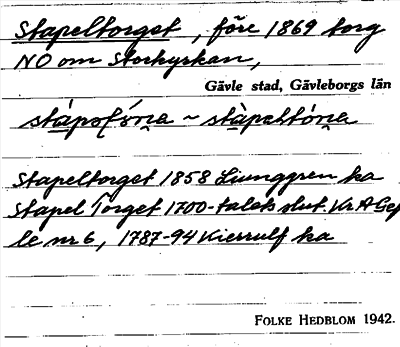 Stapeltorget, före 1869 torg
NO om Storkyrkan,
Gävle stad, Gävleborgs län
Stapeltorget 1858 Ljunggren ka
Stapel Torget 1700-talets slut. Kr A Gef
le nr 6, 1787-94 Kierrulf ka
FOLKE HEDBLOM 1942.